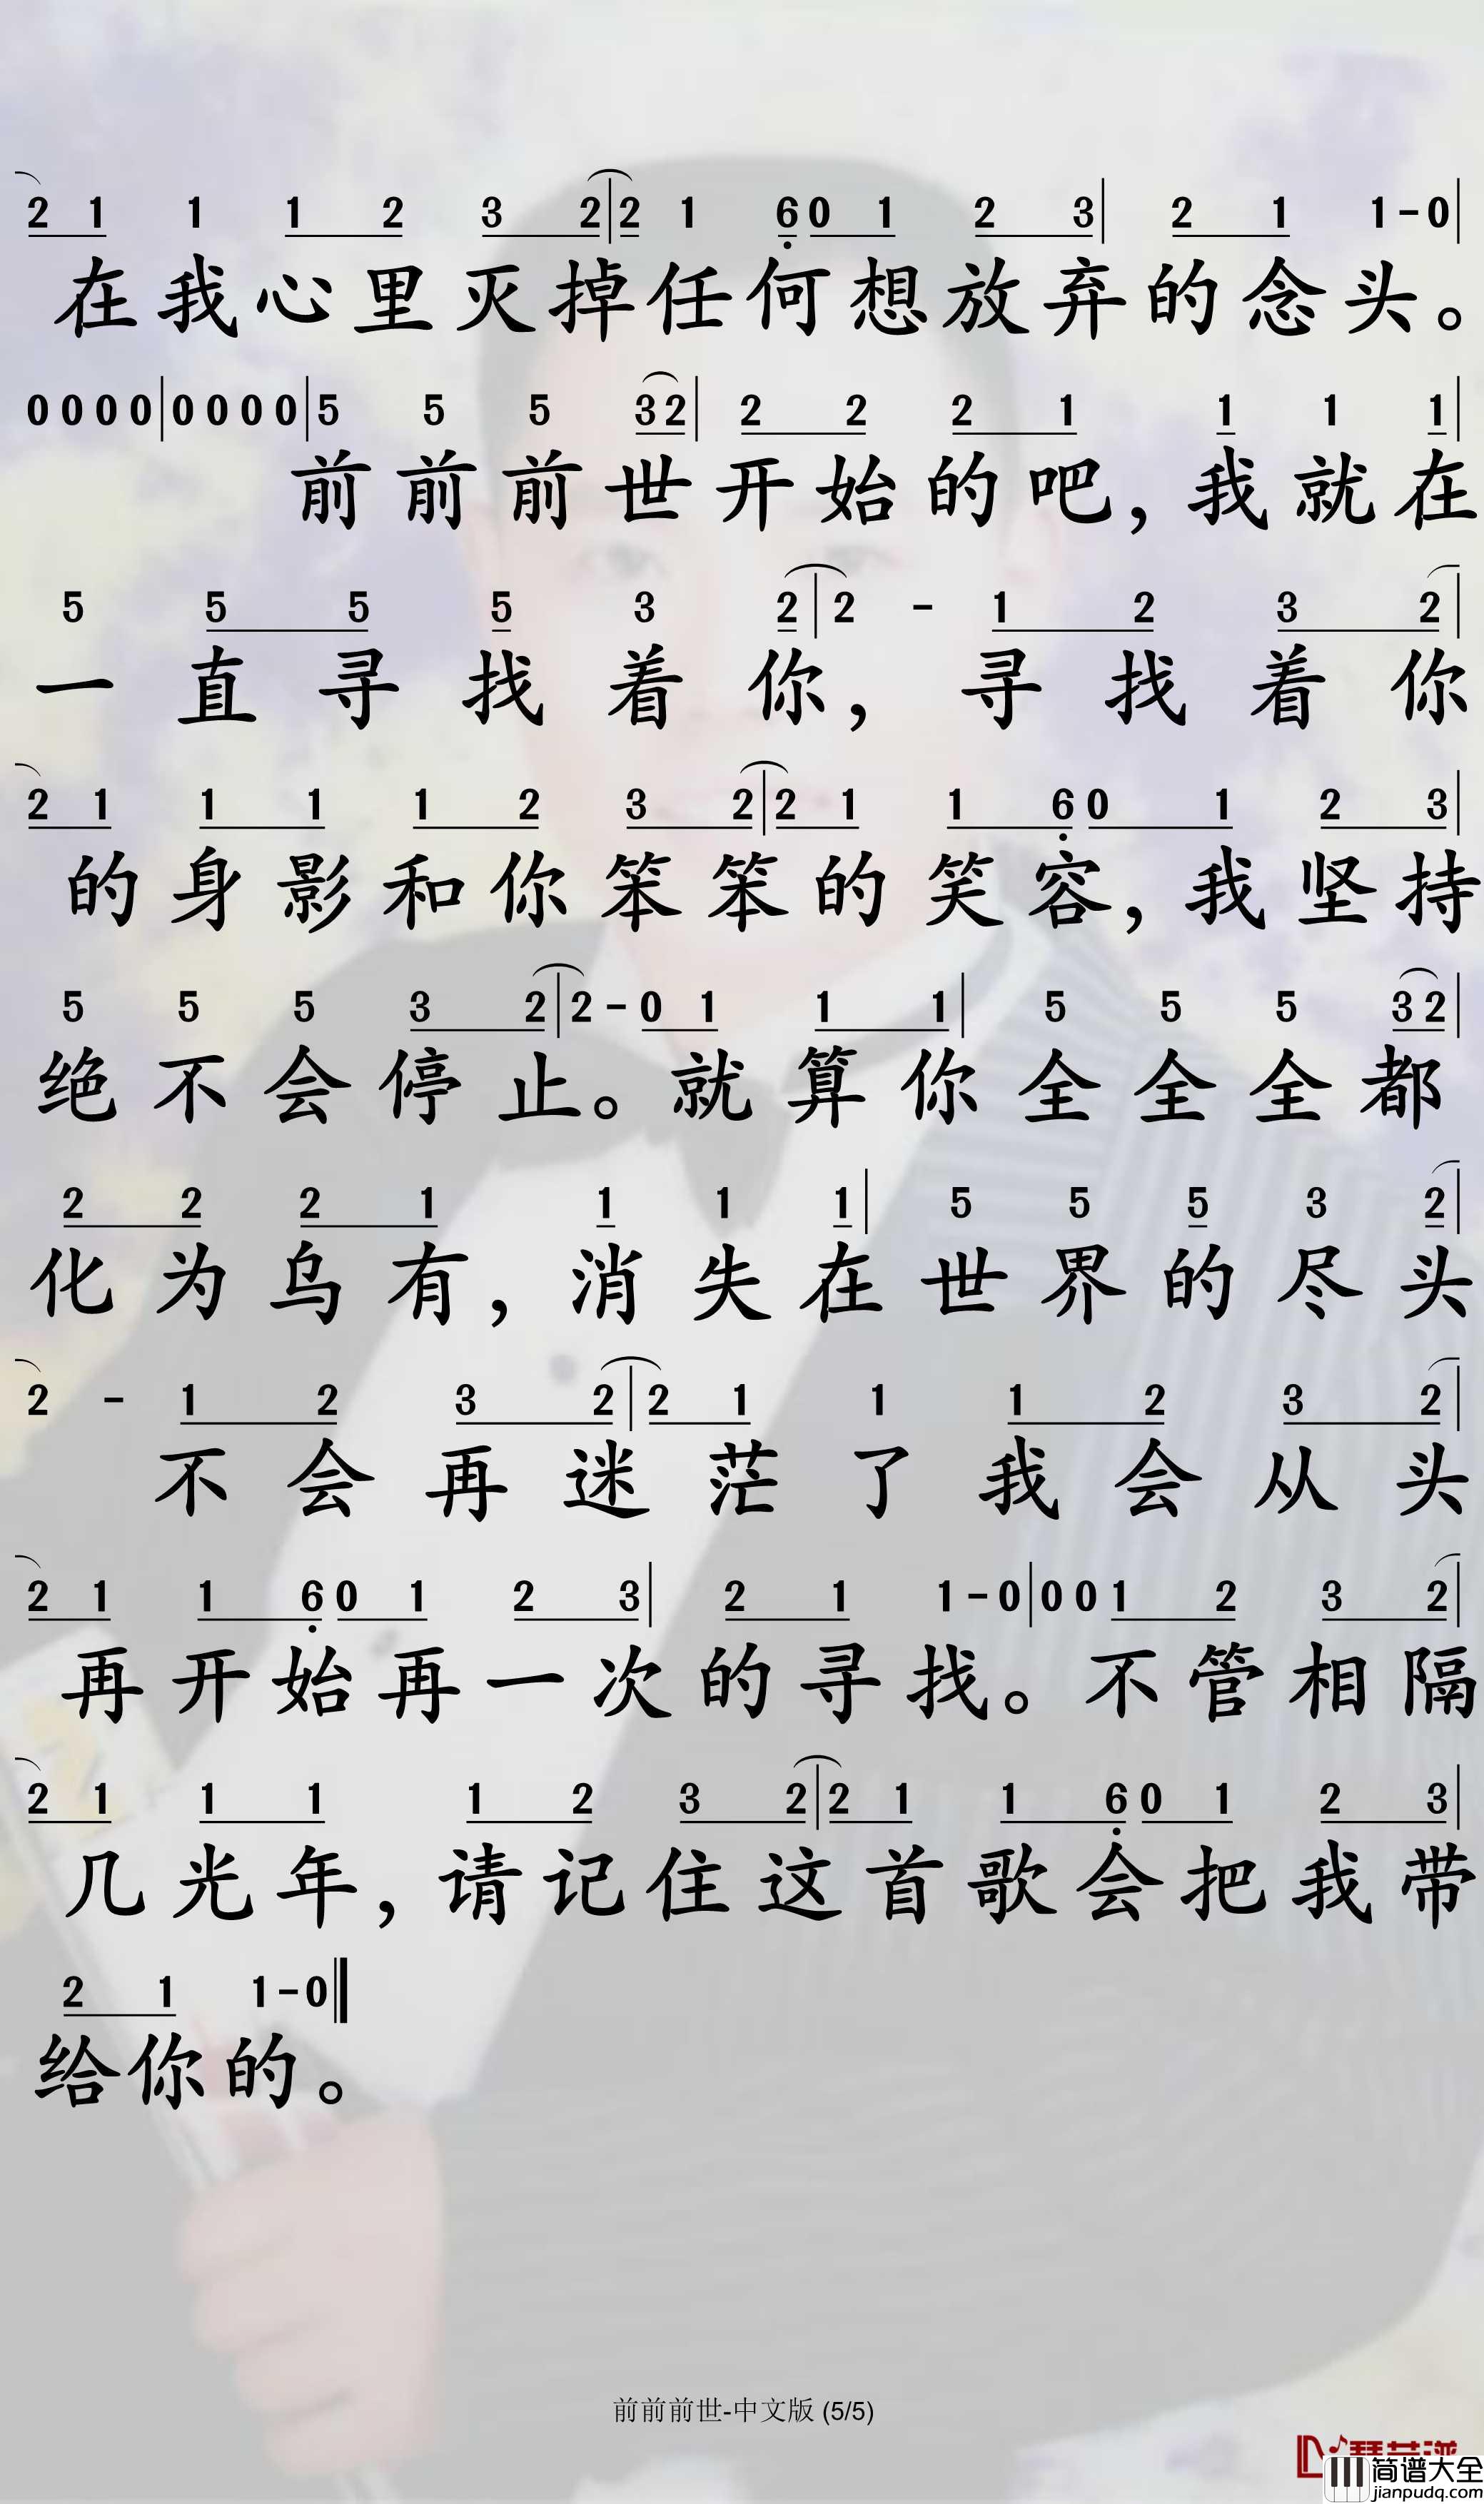 2 1 1 1 2 3 2 | 2 1 6 0 1 2 3 | 2 1 1 - 0 |
在我心里灭掉任何想放弃的念头。
0 0 0 0 | 0 0 0 0 | 5 5 5 3 2 | 2 2 2 1 1 1 1 |
前前前世开始的吧，我就在
5 5 5 5 3 2 | 2 - 1 2 3 2 |
一直寻找着你，寻找着你
2 1 1 1 1 2 3 2 | 2 1 1 6 0 1 2 3 |
的身影和你笨笨的笑容，我坚持
5 5 5 3 2 | 2 - 0 1 1 1 | 5 5 5 3 2 |
绝不会停止。就算你全全全都
2 2 2 1 1 1 1 | 5 5 5 3 2 |
化为乌有，消失在世界的尽头
2 - 1 2 3 2 | 2 1 1 1 2 3 2 |
不会再迷茫了我会从头
2 1 1 6 0 1 2 3 | 2 1 1 - 0 | 0 0 1 2 3 2 |
再开始再一次的寻找。不管相隔
2 1 1 1 1 2 3 2 | 2 1 1 6 0 1 2 3 |
几光年，请记住这首歌会把我带
2 1 1 - 0 ‖
给你的。
前前前世-中文版 (5/5)
简谱大全
jianpudq.com